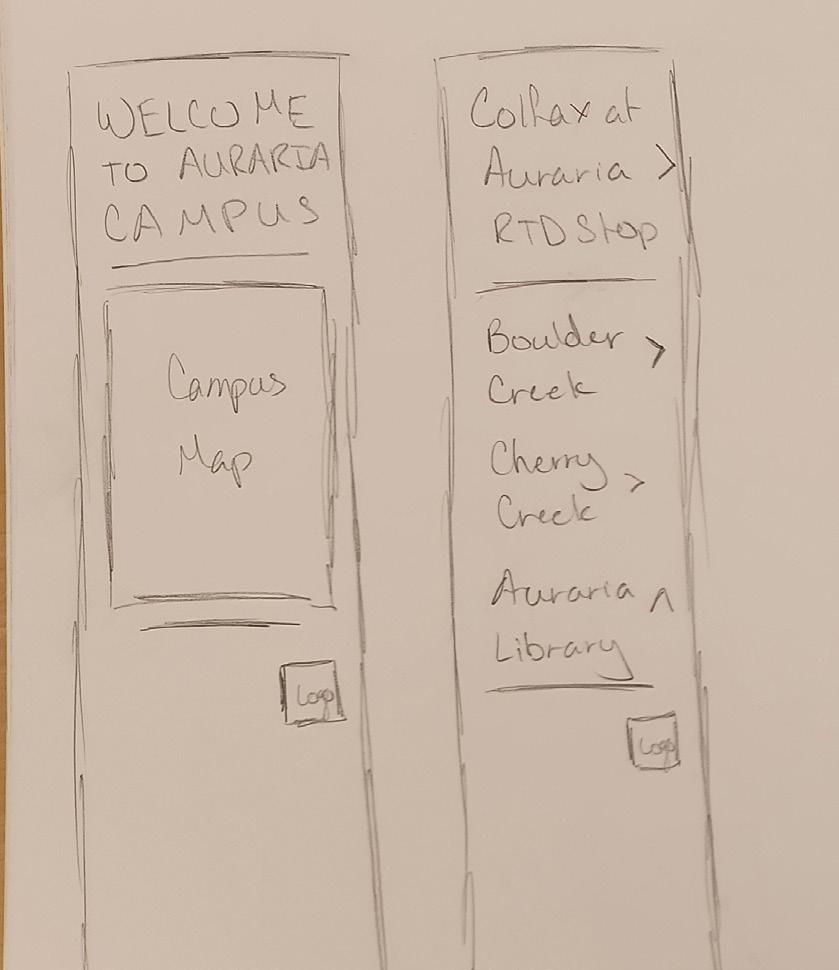 WELCOME
TO AURARIA
CAMPUS
Campus
Map
Logo
Colfax at
Auraria >
RTD Stop
Boulder >
Creek
Cherry >
Creek
Auraria ^
Library
Logo